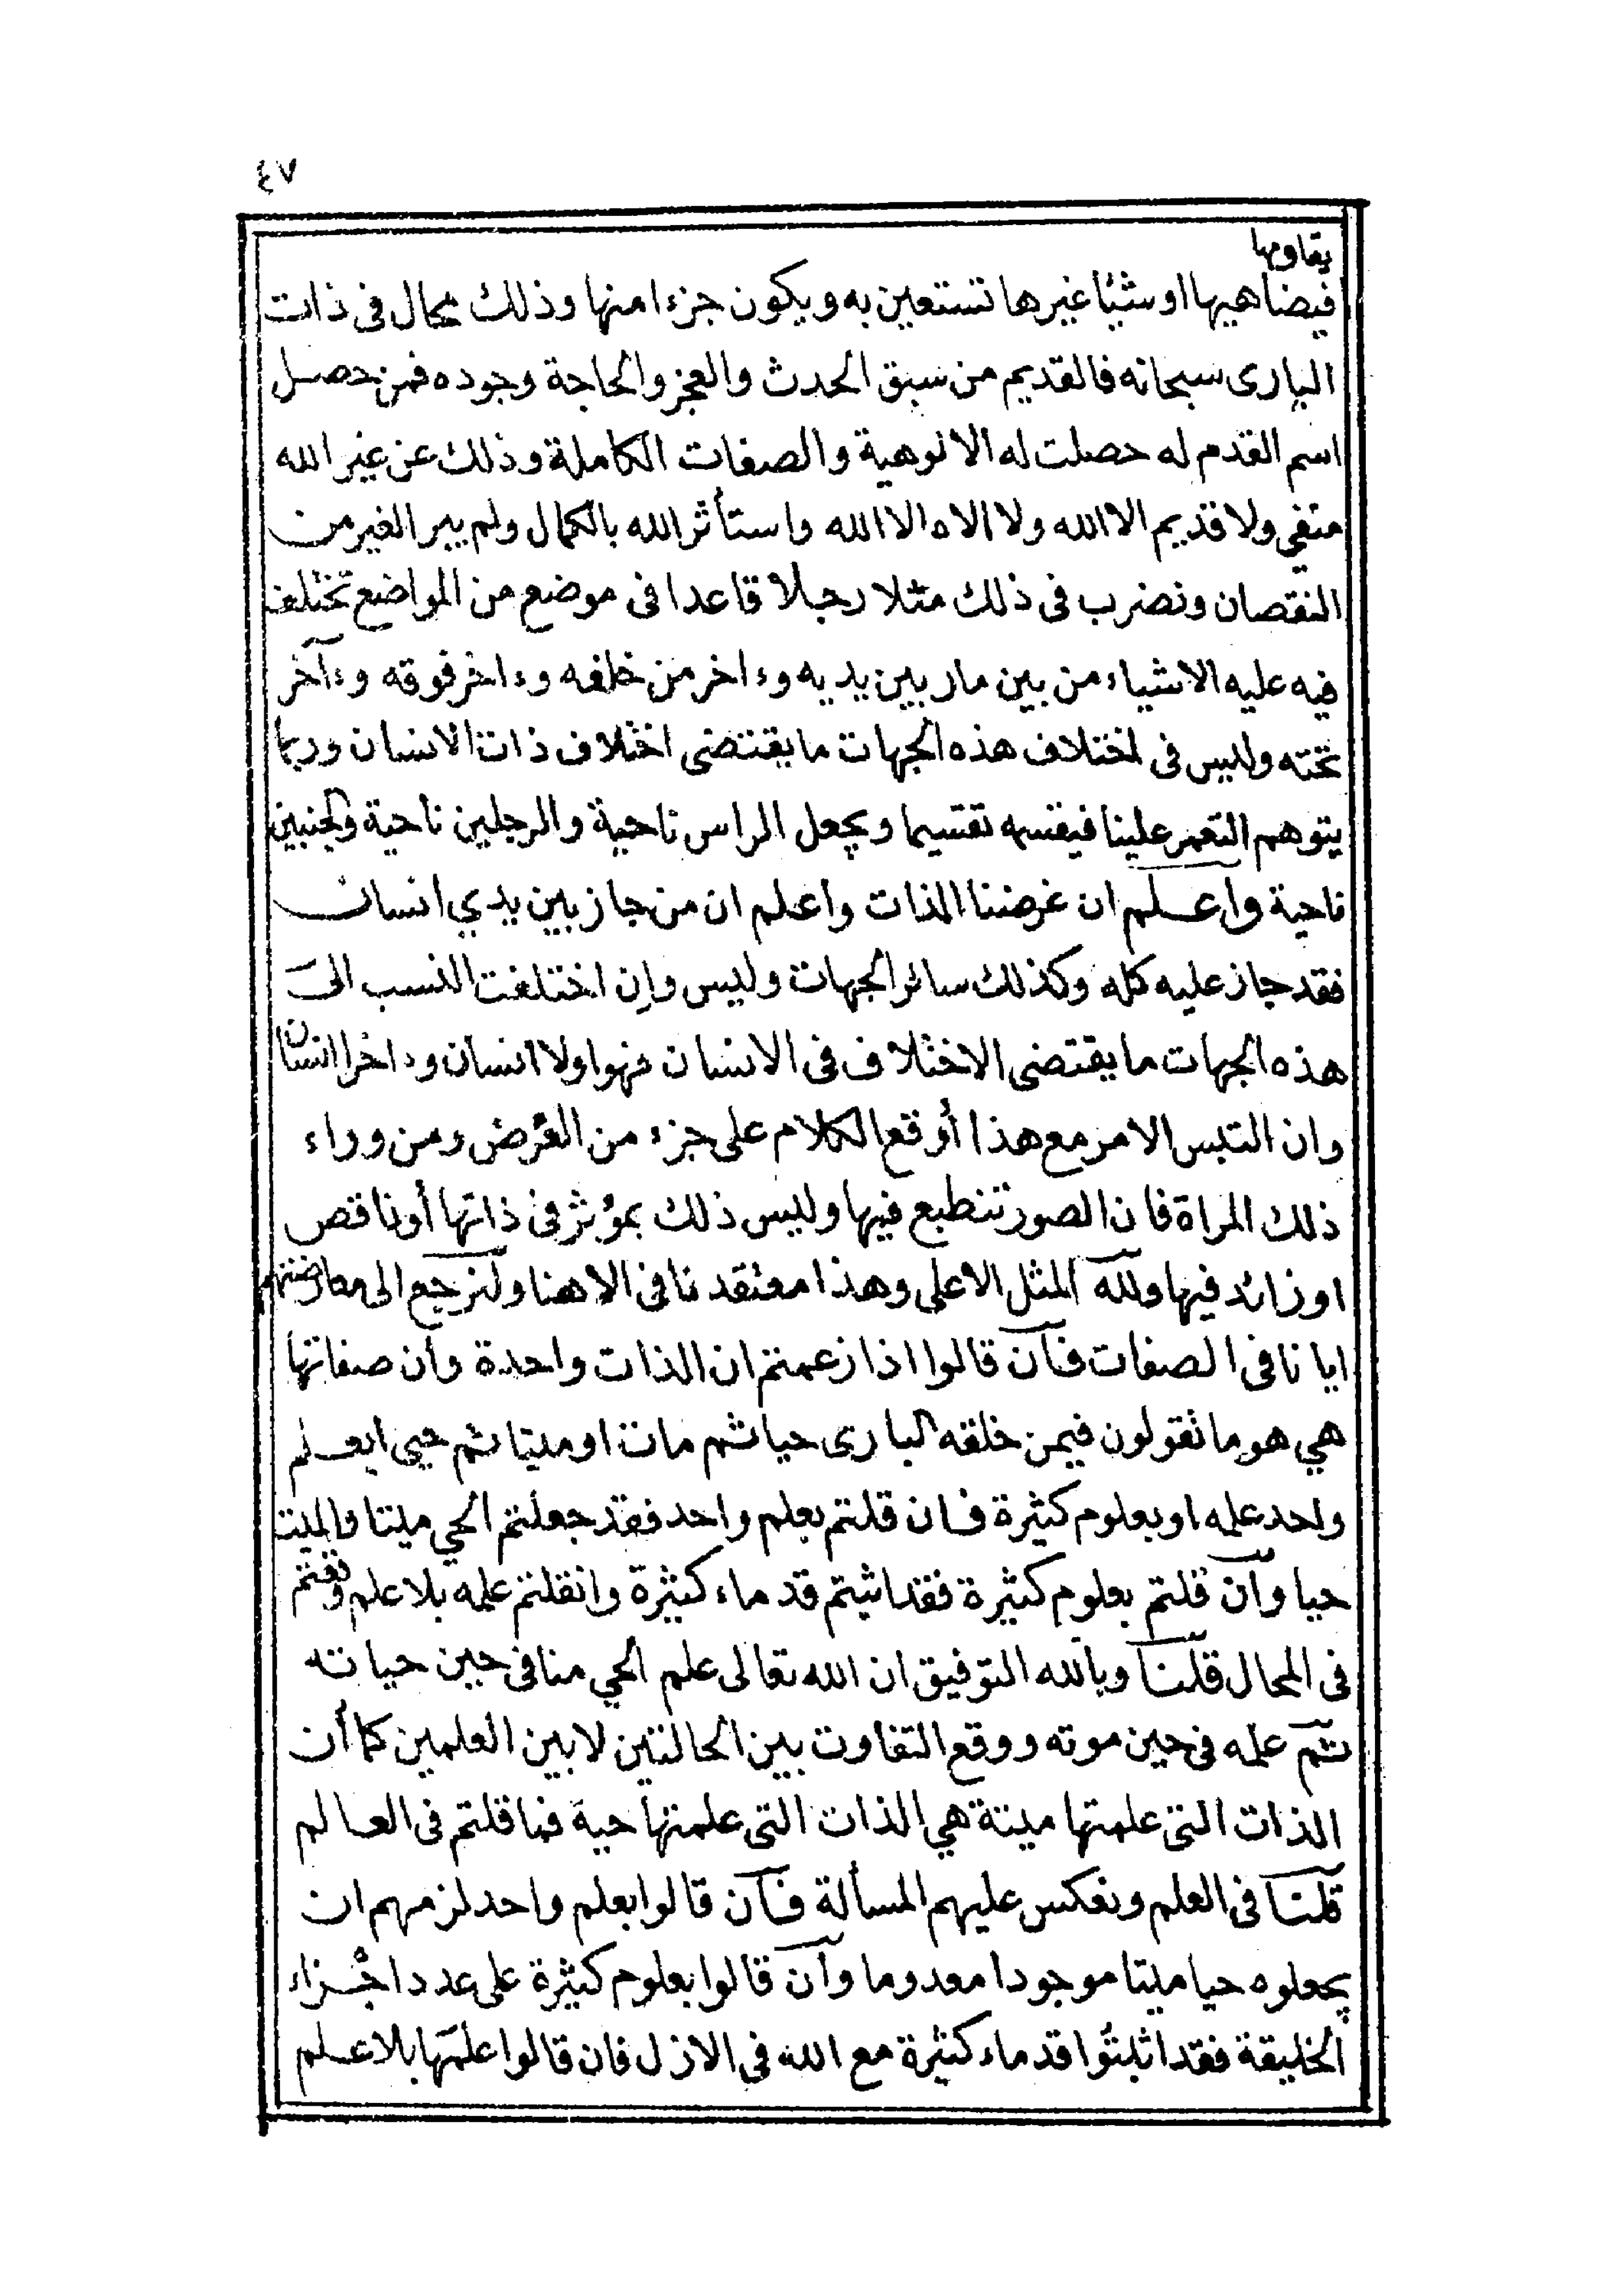 ٤٧
يقاومها
فيضاهيها او شيئا غيرها تستعين به ويكون جزءا منها وذلك محال فى ذات
البارى سبحانه فالقديم من سبق الحدث والعجز والحاجة وجوده فمن حصل
اسم القدم له حصلت له الالوهية والصفات الكاملة وذلك عن غير الله
منفي ولا قديم الا الله ولا الاه الا الله واستأثر الله بالكمال ولم يبر الغير من
النقصان ونضرب فى ذلك مثلا رجلا قاعدا فى موضع من المواضع تختلف
فيه عليه الاشياء من بين مار بين يديه وءاخر من خلفه وءاخر فوقه وءآخر
تحته وليس فى اختلاف هذه الجهات ما يقتضى اختلاف ذات الانسان وربما
يتوهم علينا فيقسمه تقسيما ويجعل الراس ناحية والرجلين ناحية والجنبين
ناحية واعلم ان غرضنا الذات واعلم ان من جاز بين يدي انسان
فقد جاز عليه كله وكذلك سائر الجهات وليس وإن اختلفت النسب الى
هذه الجهات ما يقتضى الاختلاف فى الانسان فهو اولا انسان وءاخرا انسان
وان التبس الامر مع هذا أوقع الكلام على جزء من العرض ومن وراء
ذلك المراة فان الصور تنطبع فيها وليس ذلك بمؤثر فى ذاتها أو ناقص
او زائد فيها ولله المثل الاعلى وهذا معتقدنا فى الاهنا ولنرجع الى معارضتهم
ايانا فى الصفات فان قالوا اذا زعمتم ان الذات واحدة وأن صفاتها
هي هو ما تقولون فيمن خلقه البارى حيا ثم مات او ميتا ثم حيى ابعلم
واحد علمه او بعلوم كثيرة فان قلتم بعلم واحد فقد جعلتم الحي ميتا والميت
حيا وان قلتم بعلوم كثيرة فقد اثبتم قدماء كثيرة وان قلتم علمه بلا علم وقعتم
فى المحال قلنا وبالله التوفيق ان الله تعالى علم الحي منا فى حين حياته
ثم علمه فى حين موته ووقع التفاوت بين الحالتين لا بين العلمين كما أن
الذات التى علمتها ميتة هي الذات التى علمتها حية فما قلتم فى العالم
قلنا فى العلم ونعكس عليهم المسألة فان قالوا بعلم واحد لزمهم ان
يجعلوه حيا ميتا موجودا معدوما وأن قالوا بعلوم كثيرة على عدد اجزاء
الخليقة فقد اثبتوا قدماء كثيرة مع الله فى الازل فان قالوا علمها بلا علم